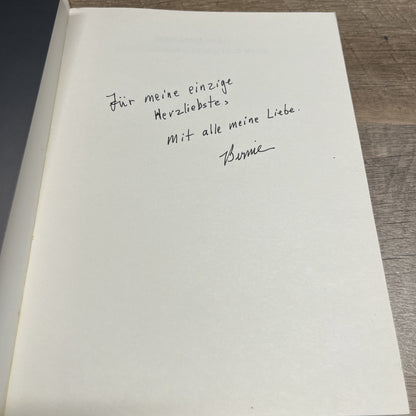 Für meine einzige
Herzliebste,
mit alle meine Liebe.
Bernie